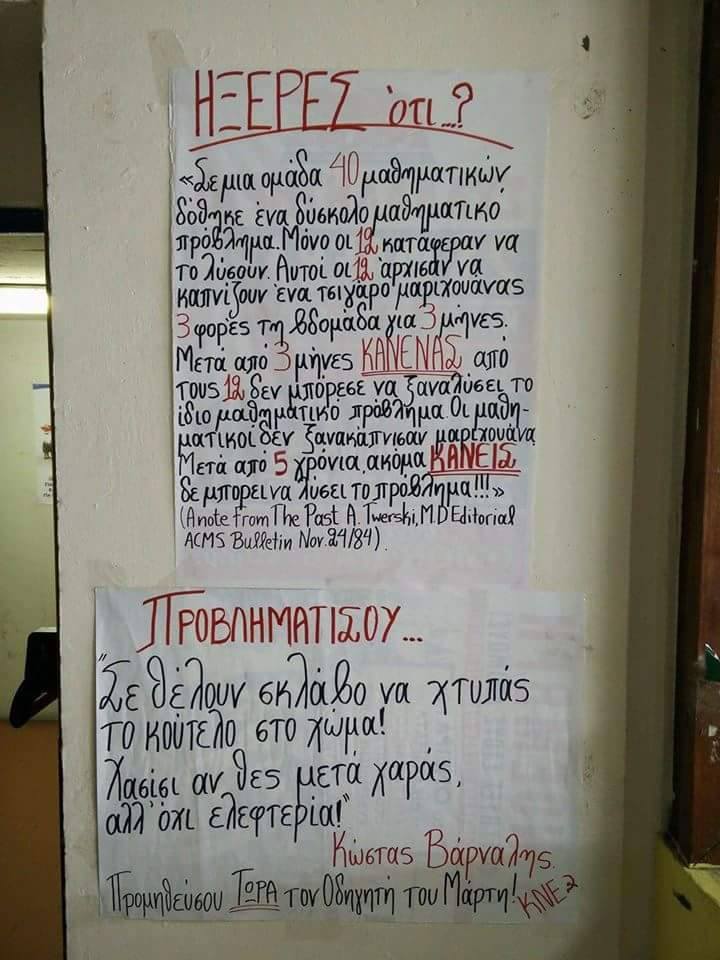 ΗΞΕΡΕΣ ότι...?
«Σε μια ομάδα 40 μαθηματικών,
δόθηκε ένα δύσκολο μαθηματικό
πρόβλημα. Μόνο οι 12 κατάφεραν να
το λύσουν. Αυτοί οι 12 άρχισαν να
καπνίζουν ένα τσιγάρο μαριχουάνας
3 φορές τη βδομάδα για 3 μήνες.
Μετά από 3 μήνες ΚΑΝΕΝΑΣ από
τους 12 δεν μπόρεσε να ξαναλύσει το
ίδιο μαθηματικό πρόβλημα. Οι μαθη-
ματικοί δεν ξανακάπνισαν μαριχουάνα
Μετά από 5 χρόνια, ακόμα ΚΑΝΕΙΣ
δε μπορεί να λύσει το πρόβλημα!!!»
(A note from The Past A. Twerski, M.D Editorial
ACMS Bulletin Nov. 24/84).
ΠΡΟΒΛΗΜΑΤΙΣΟΥ...
"Σε θέλουν σκλάβο να χτυπάς
το κούτελο στο χώμα!
Χασίσι αν θες μετά χαράς,
αλλ' όχι ελεφτερία!"
Κώστας Βάρναλης.
Προμηθεύσου ΤΩΡΑ τον Οδηγητή του Μάρτη!
ΚΝΕ